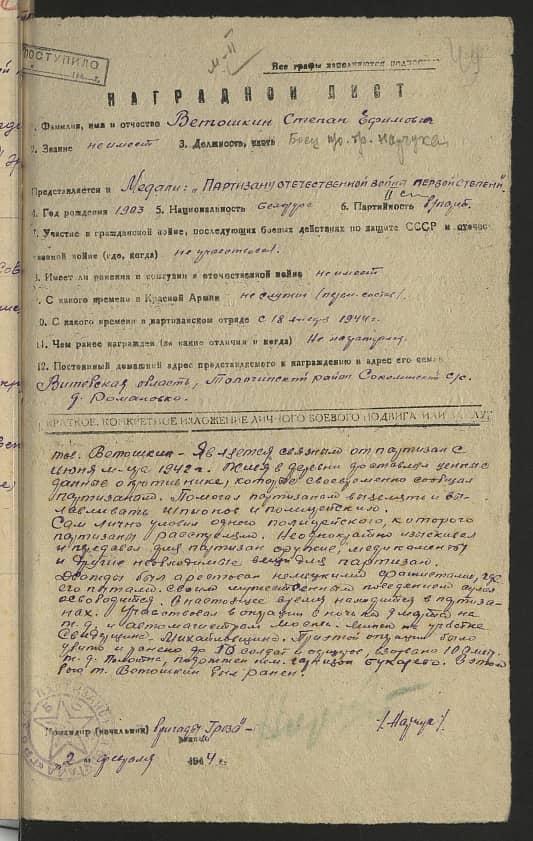 ПОСТУПИЛО
Все графы заполняются подробно
49
НАГРАДНОЙ ЛИСТ
1. Фамилия, имя и отчество Ветошкин Степан Ефимович
2. Звание не имеет 3. Должность, часть Боец пр. гр. Начука
Представляется к Медали: „ПАРТИЗАНУ ОТЕЧЕСТВЕННОЙ ВОЙНЫ ПЕРВОЙ СТЕПЕНИ"
II ст
4. Год рождения 1903 5. Национальность белорус 6. Партийность б/парт.
7. Участие в гражданской войне, последующих боевых действиях по защите СССР и отечес-
твенной войне (где, когда) не участвовал.
8. Имеет ли ранения и контузии в отечественной войне не имеет
9. С какого времени в Красной Армии не служил
10. С какого времени в партизанском отряде с 18 1944 г.
11. Чем ранее награжден (за какие отличия и когда) Не награжден
12. Постоянный домашний адрес представляемого к награждению и адрес его семьи
Витебская область, Толочинский район Соколинский с/с.
д. Романовко
КРАТКОЕ, КОНКРЕТНОЕ ИЗЛОЖЕНИЕ ЛИЧНОГО БОЕВОГО ПОДВИГА ИЛИ ЗАСЛУГ
тов. Ветошкин - Является связным от партизан с
июня м-ца 1942 г. Живя в деревни доставлял ценные
данные о противнике, которые своевременно сообщал
партизанам. Помогал партизанам вы-
лавливать шпионов и полицейских.
Сам лично уловил одного полицейского, которого
партизаны расстреляли. Неоднократно изыскивал
и предавал для партизан оружие, медикаменты
и другие необходимые вещи для партизан.
Дважды был арестован немецкими фашистами, где
его пытали. Своим мужественным поведением сумел
освободится. В настоящее время находится в партиза-
нах. Участвовал в операции с ночи на
ж.д. и автомагистрали Москва - Минск на участке
Михайловщино. При этой операции было
убито и ранено до 10 солдат и офицеров, взорвано 100 мет.
ж.д. полотна, подожжен нем. гарнизон Бухарево. В этом
бою т. Ветошкин был ранен.
Командир (начальник) бригады "Гроза" - /Начук/.
"2" февраля 1944 г.